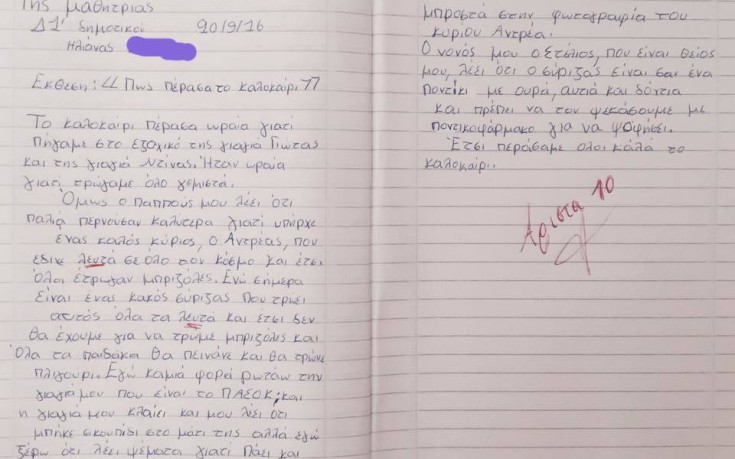 της μαθήτριας
Δ1' δημοτικού 20/9/16
Ηλιάνας
Έκθεση: "Πως πέρασα το καλοκαίρι"
Το καλοκαίρι πέρασα ωραία γιατί
πήγαμε στο εξοχικό της γιαγιά Γιώτας
και της γιαγιά Ντίνας. Ήταν ωραία
γιατί τρώγαμε όλο γεμιστά.
Όμως ο παππούς μου λέει ότι
παλιά περνούσαν καλύτερα γιατί υπήρχε
ένας καλός κύριος, ο Αντρέας, που
έδινε λευτά σε όλο τον κόσμο και έτσι
όλοι έτρωγαν μπριζόλες. Ενώ σήμερα
είναι ένας κακός σύριζας που τρώει
αυτός όλα τα λευτά και έτσι δεν
θα έχουμε για να τρώμε μπριζόλες και
όλα τα παιδάκια θα πεινάνε και θα τρώνε
πλιγούρι. Εγώ καμιά φορά ρωτάω την
γιαγιά μου που είναι το ΠΑΣΟΚ; και
η γιαγιά μου κλαίει και μου λέει ότι
μπήκε σκουπίδι στο μάτι της αλλά εγώ
ξέρω ότι λέει ψέματα γιατί πάει και
μπροστά στην φωτογραφία του
κύριου Αντρέα.
Ο νονός μου ο Στέλιος, που είναι θείος
μου, λέει ότι ο σύριζας είναι σαν ένα
ποντίκι με ουρά, αυτιά και δόντια
και πρέπει να τον ψεκάσουμε με
ποντικοφάρμακο για να ψοφήσει.
Έτσι περάσαμε όλοι καλά το
καλοκαίρι.
Άριστα 10